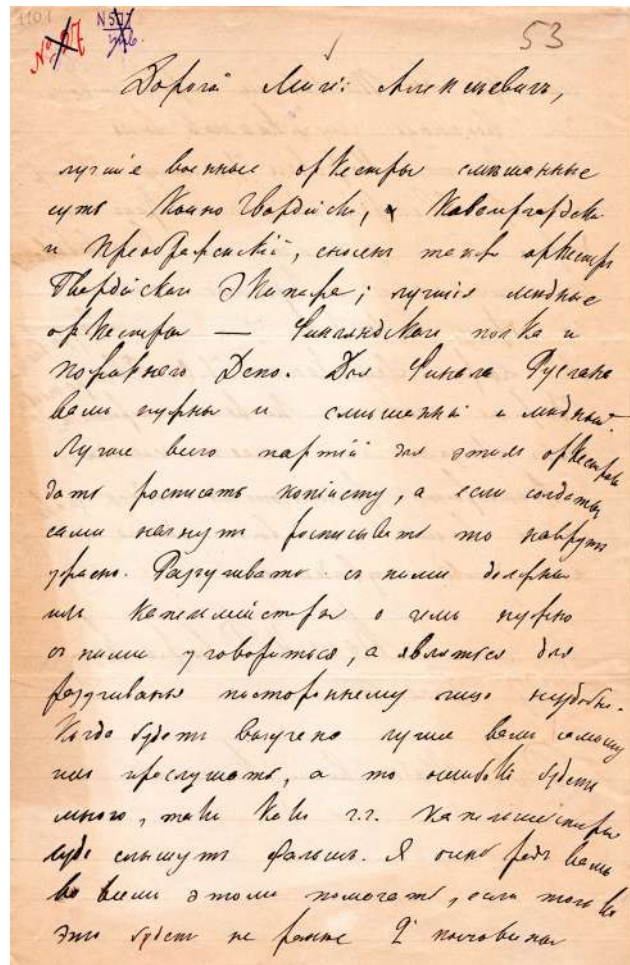 1101
№ 57
N 507
53
Дорогой Милій Алексѣевичъ,
лучшіе военные оркестры смѣшанные
суть Конно Гвардейскій, Кавалергардскій
и Преображенскій, сносенъ также оркестръ
Гвардейскаго Экипажа; лучшіе мѣдные
оркестры — Финляндскаго полка и
Пожарнаго Депо. Для Финала Руслана
вамъ нужны и смѣшанный и мѣдный.
Лучше всего партіи для этихъ оркестровъ
дать росписать копіисту, а если солдаты
сами начнутъ росписывать то наврутъ
ужасно. Разучивать съ ними должны
ихъ капельмейстеры о чемъ нужно
съ ними уговориться, а являться для
разучиванья постороннему лицу неудобно.
Когда будетъ выучено лучше вамъ самому
ихъ прослушать, а то ошибокъ будетъ
много, такъ какъ г.г. капельмейстеры
худо слышутъ фальшь. Я очень радъ вамъ
во всемъ этомъ помогать, если только
это будетъ не ранѣе 2й половины